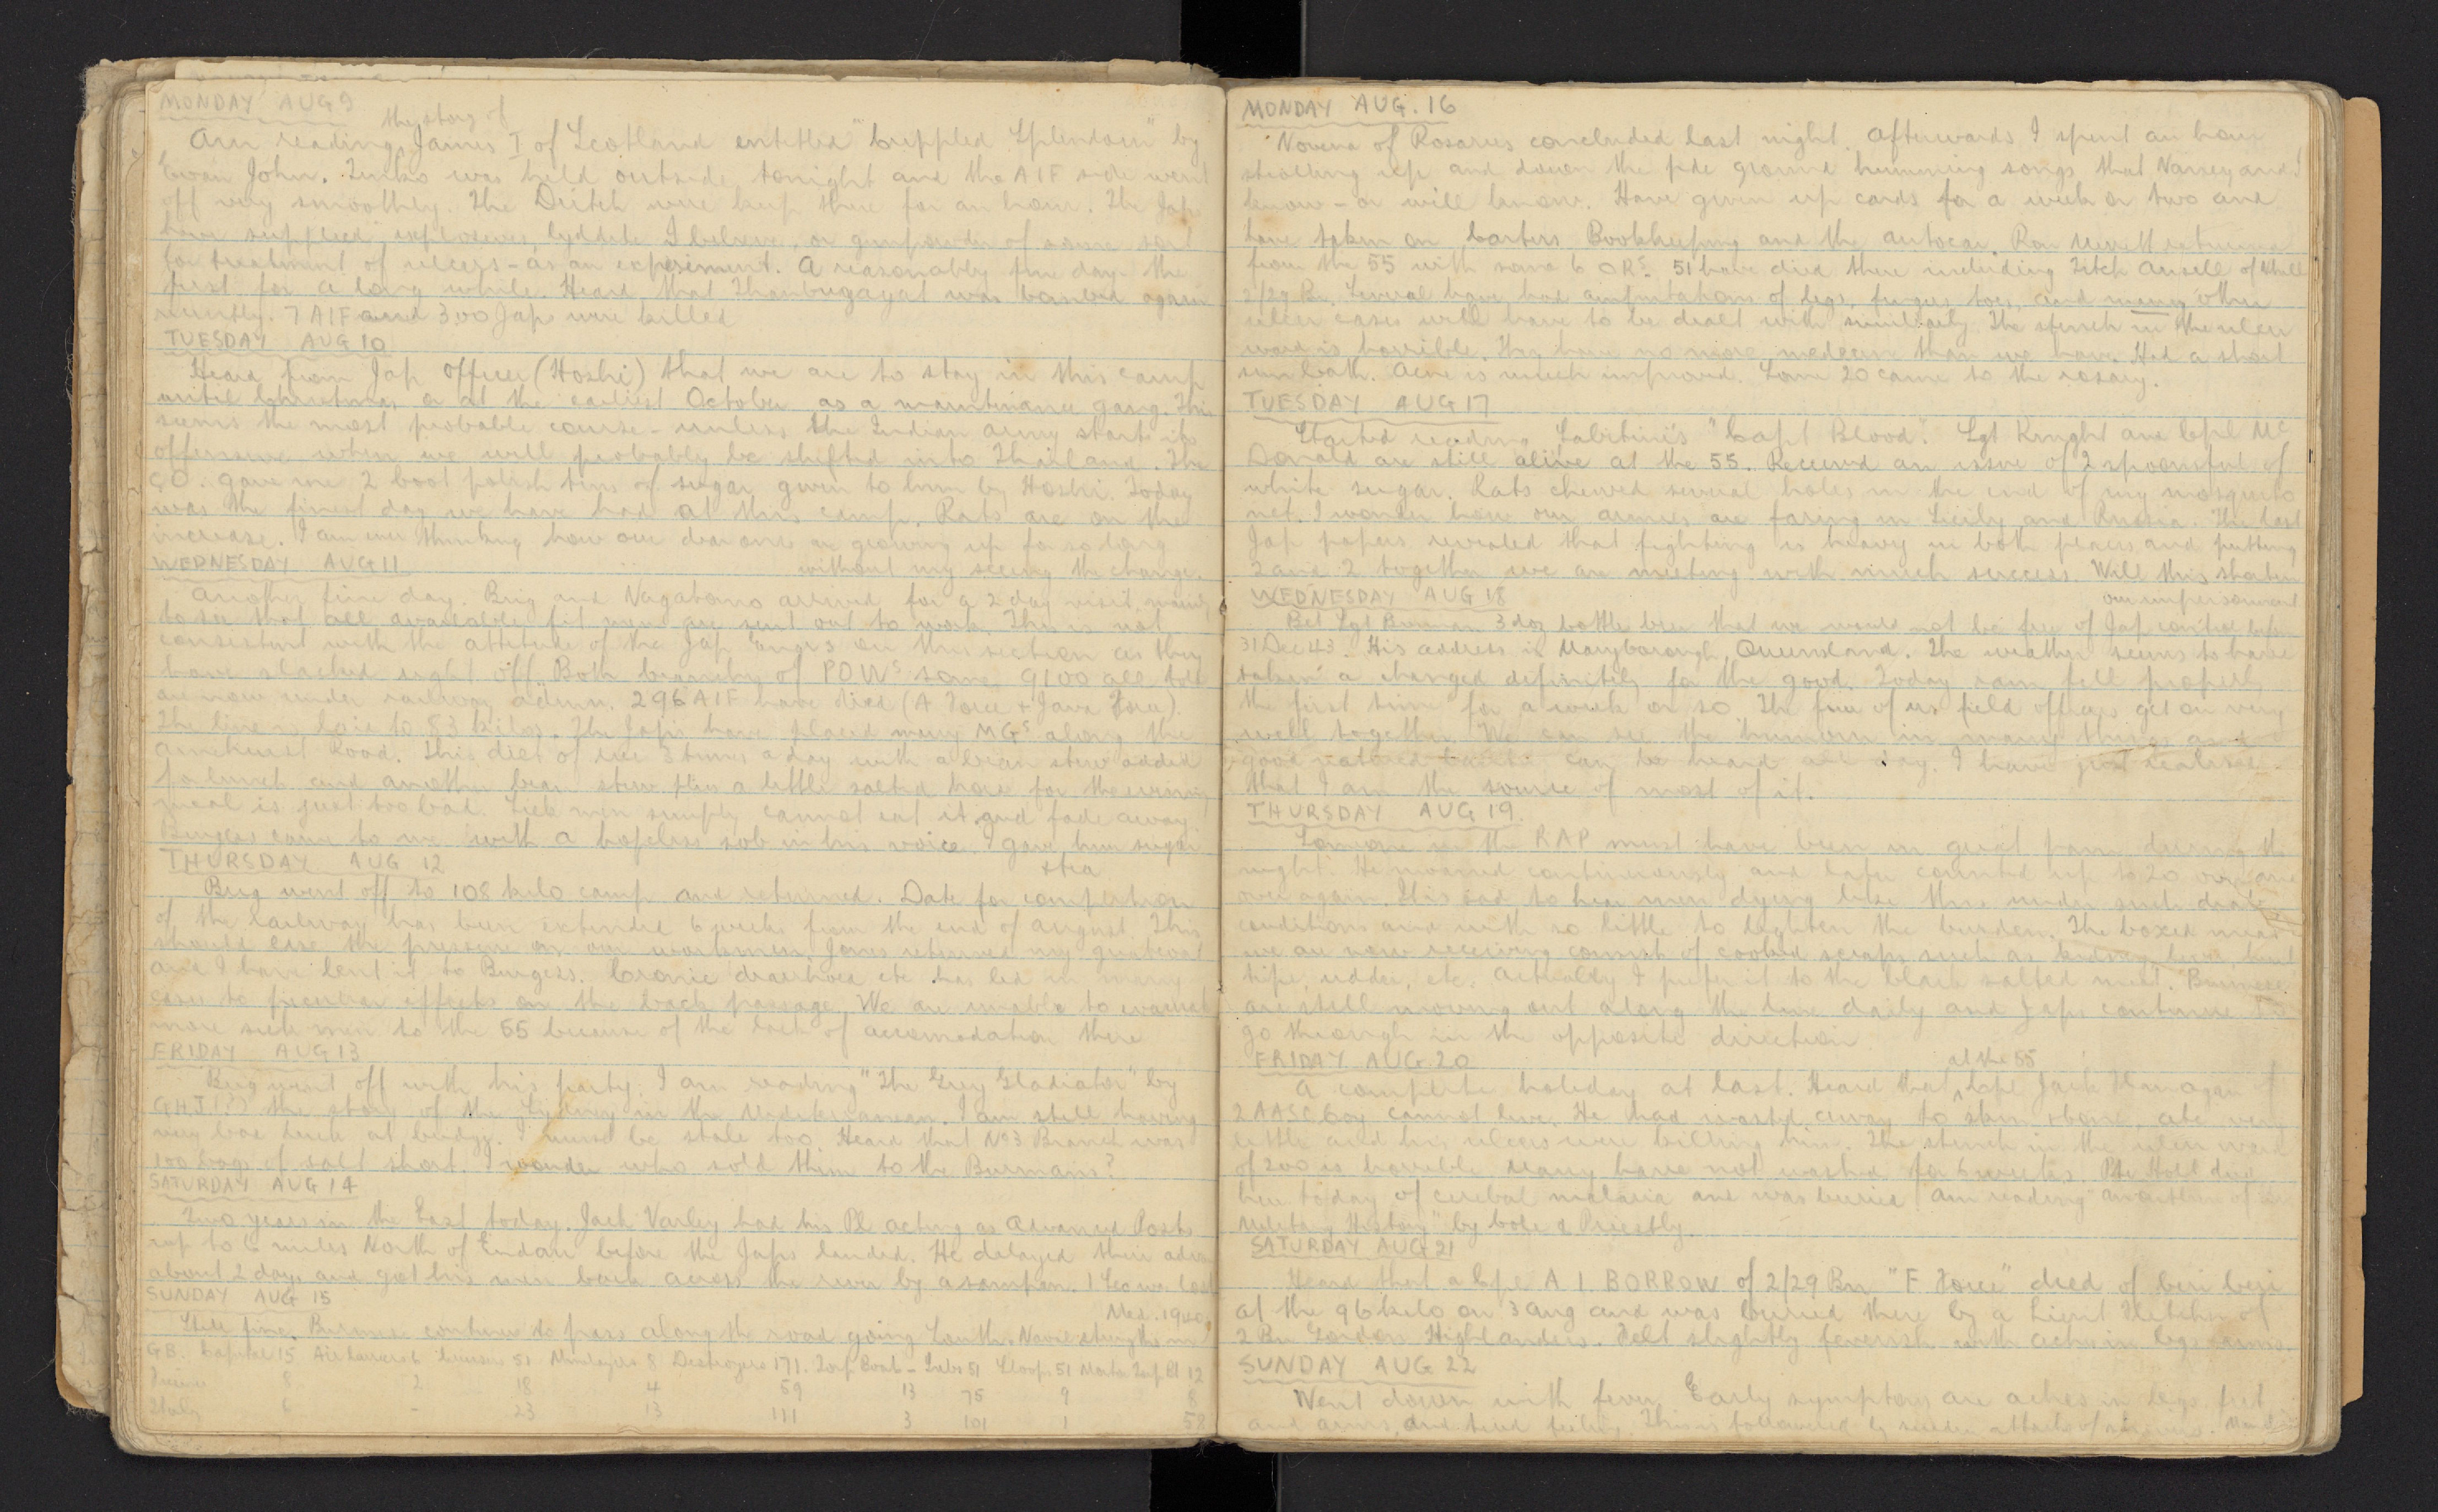 MONDAY AUG 9
the story of
Am reading James I of Scotland entitled "Crippled Splendour" by
Evan John. Tenko was held outside tonight and the AIF side went
off very smoothly. The Dutch were kept there for an hour. The Japs
have supplied explosives, lyddite I believe, or gunpowder of some sort
for treatment of ulcers - as an experiment. A reasonably fine day - the
first for a long while. Heard that Thanbuzayat was bombed again
recently. 7 AIF and 300 Japs were killed
TUESDAY AUG 10
Heard from Jap Officer (Hoshi) that we are to stay in this camp
until Christmas or at the earliest October as a maintenance gang. This
seems the most probable course - unless the Indian army start its
offensive when we will probably be shifted into Thailand. The
CO. gave me 2 boot polish tins of sugar given to him by Hoshi. Today
was the finest day we have had at this camp. Rats are on the
increase. I am ever thinking how our dear ones are growing up for so long
without my seeing the change.
WEDNESDAY AUG 11
Another fine day. Brig and Nagatomo arrived for a 2 day visit, mainly
to see that all available fit men are sent out to work. This is not
consistent with the attitude of the Jap Engrs on this section as they
have slacked right off. Both branches of POWs some 9100 all told
are now under railway admin. 296 AIF have died (A Force + Java Force).
The line is laid to 83 kilos. The Japs have placed many MGs along the
Road. This diet of rice 3 times a day with a bean stew added
for lunch and another bean stew plus a little salted horse for the evening
meal is just too bad. Sick men simply cannot eat it and fade away.
Burgess came to me with a hopeless sob in his voice. I gave him sugar
+ tea
THURSDAY AUG 12
Brig went off to 108 kilo camp and returned. Date for completion
of the railway has been extended 6 weeks from the end of August. This
should ease the pressure on our workmen. Jones returned my
and I have lent it to Burgess. Cronic diarrhoea etc has led in many
cases to peculiar effects on the back passage. We are unable to evacuate
more sick men to the 55 because of the lack of accomodation there
FRIDAY AUG 13
Brig went off with his party. I am reading "The Grey Gladiator" by
the story of the Sydney in the Mediterranean. I am still having
very bad luck at bridge. I must be stale too. Heard that No3 Branch was
100 bags of salt short. I wonder who sold them to the Burmans?
SATURDAY AUG 14
Two years in the East today. Jack Varley had his Pl acting as Advanced Posts
up to 6 miles North of Endau before the Japs landed. He delayed their advance
about 2 days and got his men back across the river by a sampan. 1 Sec was lost
SUNDAY AUG 15
Still fine. Burmese continue to pass along the road going South. Naval strengths in
1940
GB. Capital 15 Aircarriers 6 Cruisers 51 Minelayers 8 Destroyers 171. Torp Boat - Subs 51 Sloops 51 Motor Torp Bt 12
8 2 18 4 59 13 75 9 8
Italy 6 - 23 13 111 3 101 1 58
MONDAY AUG. 16
Novena of Rosaries concluded last night. Afterwards I spent an hour
strolling up and down the pde ground humming songs that Nancy and I
know - or will know. Have given up cards for a week or two and
have taken on Carters Bookkeeping and the autocar. Ron returned
from the 55 with some 6 ORs. 51 have died there including Titch Ansell of
2/29 Bn. Several have had amputations of legs, fingers, toes, and many other
ulcer cases will have to be dealt with similarly. The stench in the ulcer
ward is horrible. They have no more medecin than we have. Had a short
sun bath. Acne is much improved. Some 20 came to the rosary.
TUESDAY AUG 17
Started reading Sabitini's "Capt Blood". Sgt Knight and Cpl Mc
Donald are still alive at the 55. Received an issue of 2 spoonsful of
white sugar. Rats chewed several holes in the end of my mosquito
net. I wonder how our armies are faring in Sicily and Russia. The last
Jap papers revealed that fighting is heavy in both places and putting
2 and 2 together we are meeting with much success. Will this shorten
our imprisonment
WEDNESDAY AUG 18
Bet Sgt 3 doz bottle beer that we would not be free of Jap control before
31 Dec 43. His address is Maryborough, Queensland. The weather seems to have
taken a changed definitely for the good. Today rain fell properly
the first time for a week or so. The few of us field officers get on very
well together. We can see the humour in many things and
good natured can be heard all day. I have just realised
that I am the source of most of it.
THURSDAY AUG 19.
Someone in the RAP must have been in great pain during the
night. He moaned continuously and later counted up to 20 over and
over again. It is sad to hear men dying like this under such
conditions and with so little to lighten the burden. The boxed meat
we are now receiving consist of cooked scraps such as kidney liver
tripe, udder, etc. Actually I prefer it to the black salted meat. Burmese
are still moving out along the line daily and Japs continue to
go through in the opposite direction
FRIDAY AUG 20
at the 55
A complete holiday at last. Heard that Cpl Jack of
2 AASC Coy cannot live. He had wasted away to skin + bone, ate very
little and his ulcers were killing him. The stench in the ulcer ward
of 200 is horrible. Many have not washed for 6 weeks. Pte died
here today of cerebal malaria and was buried. Am reading "An outline of
Military History" by Cole & Priestly
SATURDAY AUG 21
Heard that a Cpl A I. BORROW of 2/29 Bn "F Force" died of beri beri
at the 96 kilo on 3 Aug and was buried there by a Lieut of
2 Bn Gordon Highlanders. Felt slightly feverish with aches in legs + arms.
SUNDAY AUG 22
Went down with fever. Early symptoms are aches in legs feet
and arms, and tired feeling. This is followed by sudden attack of